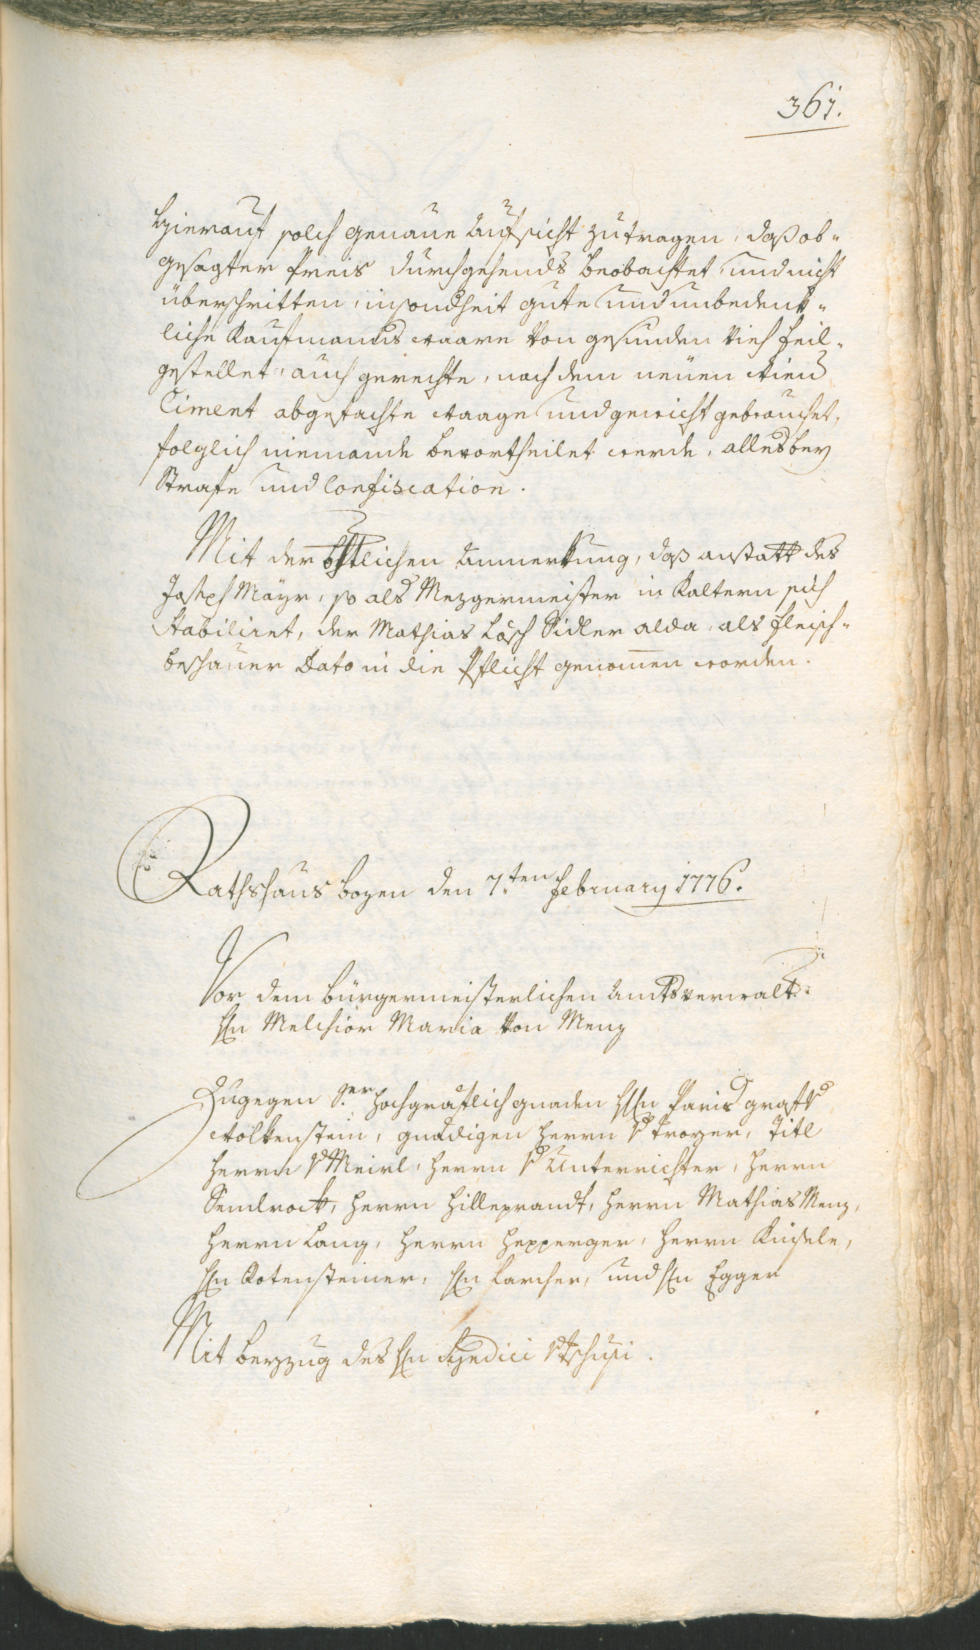 361.
hierauf solch genaue Aufsicht zutragen, daß ob-
gesagter Preis durchgehends beobachtet, und nicht
überschritten, insondheit gute und unbedenk-
liche Kaufmanns waare von gesunden Vieh feil-
gestellet, auch gerechte, nach dem neuen Wien
Ciment abgefachte waage und gewicht gebrauchet,
folglich niemande bevortheilet werde, alles bey
Strafe und Confiscation.
Mit der Anmerkung, daß anstatt des
Joseph Mayr, so als Mezgermeister in Kaltern sich
stabiliret, der Mathias Lösch Sidler alda als Fleisch-
beschauer Dato in die Pflicht genom̅en worden.
Rathshaus Bozen den 7.ten February 1776.
Vor dem Bürgermeisterlichen Amtsverwalt:
Hn Melchior Maria von Menz
Zugegen Sr. Hochgräflich gnaden Hℋn Paris graf v
Wolkenstein, gnädigen Herrn v Troyer, Titl
Herrn v Meirl, Herrn v Unterrichter, Herrn
Sendrock, Herrn Hilleprandt, Herrn Mathias Menz,
Herrn Lang, Herrn Hepperger, Herrn Kinsele,
Hn Rotensteiner, Hn Larcher, und Hn Egger
Mit beyzug des Hn Syndici v Tschusi.